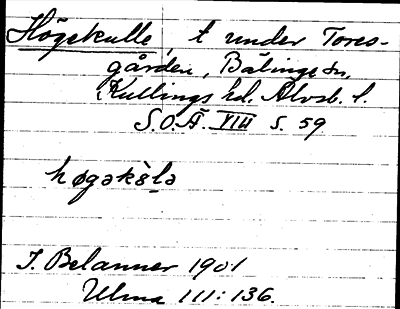 Högekulle, t under Tores-
gården, Bälinge sn,
Kullings hd. Älvsb. l.
S.O.Ä. VIII s. 59
høgəkɵ̀lə
I. Belanner 1901
Ulma 111:136.